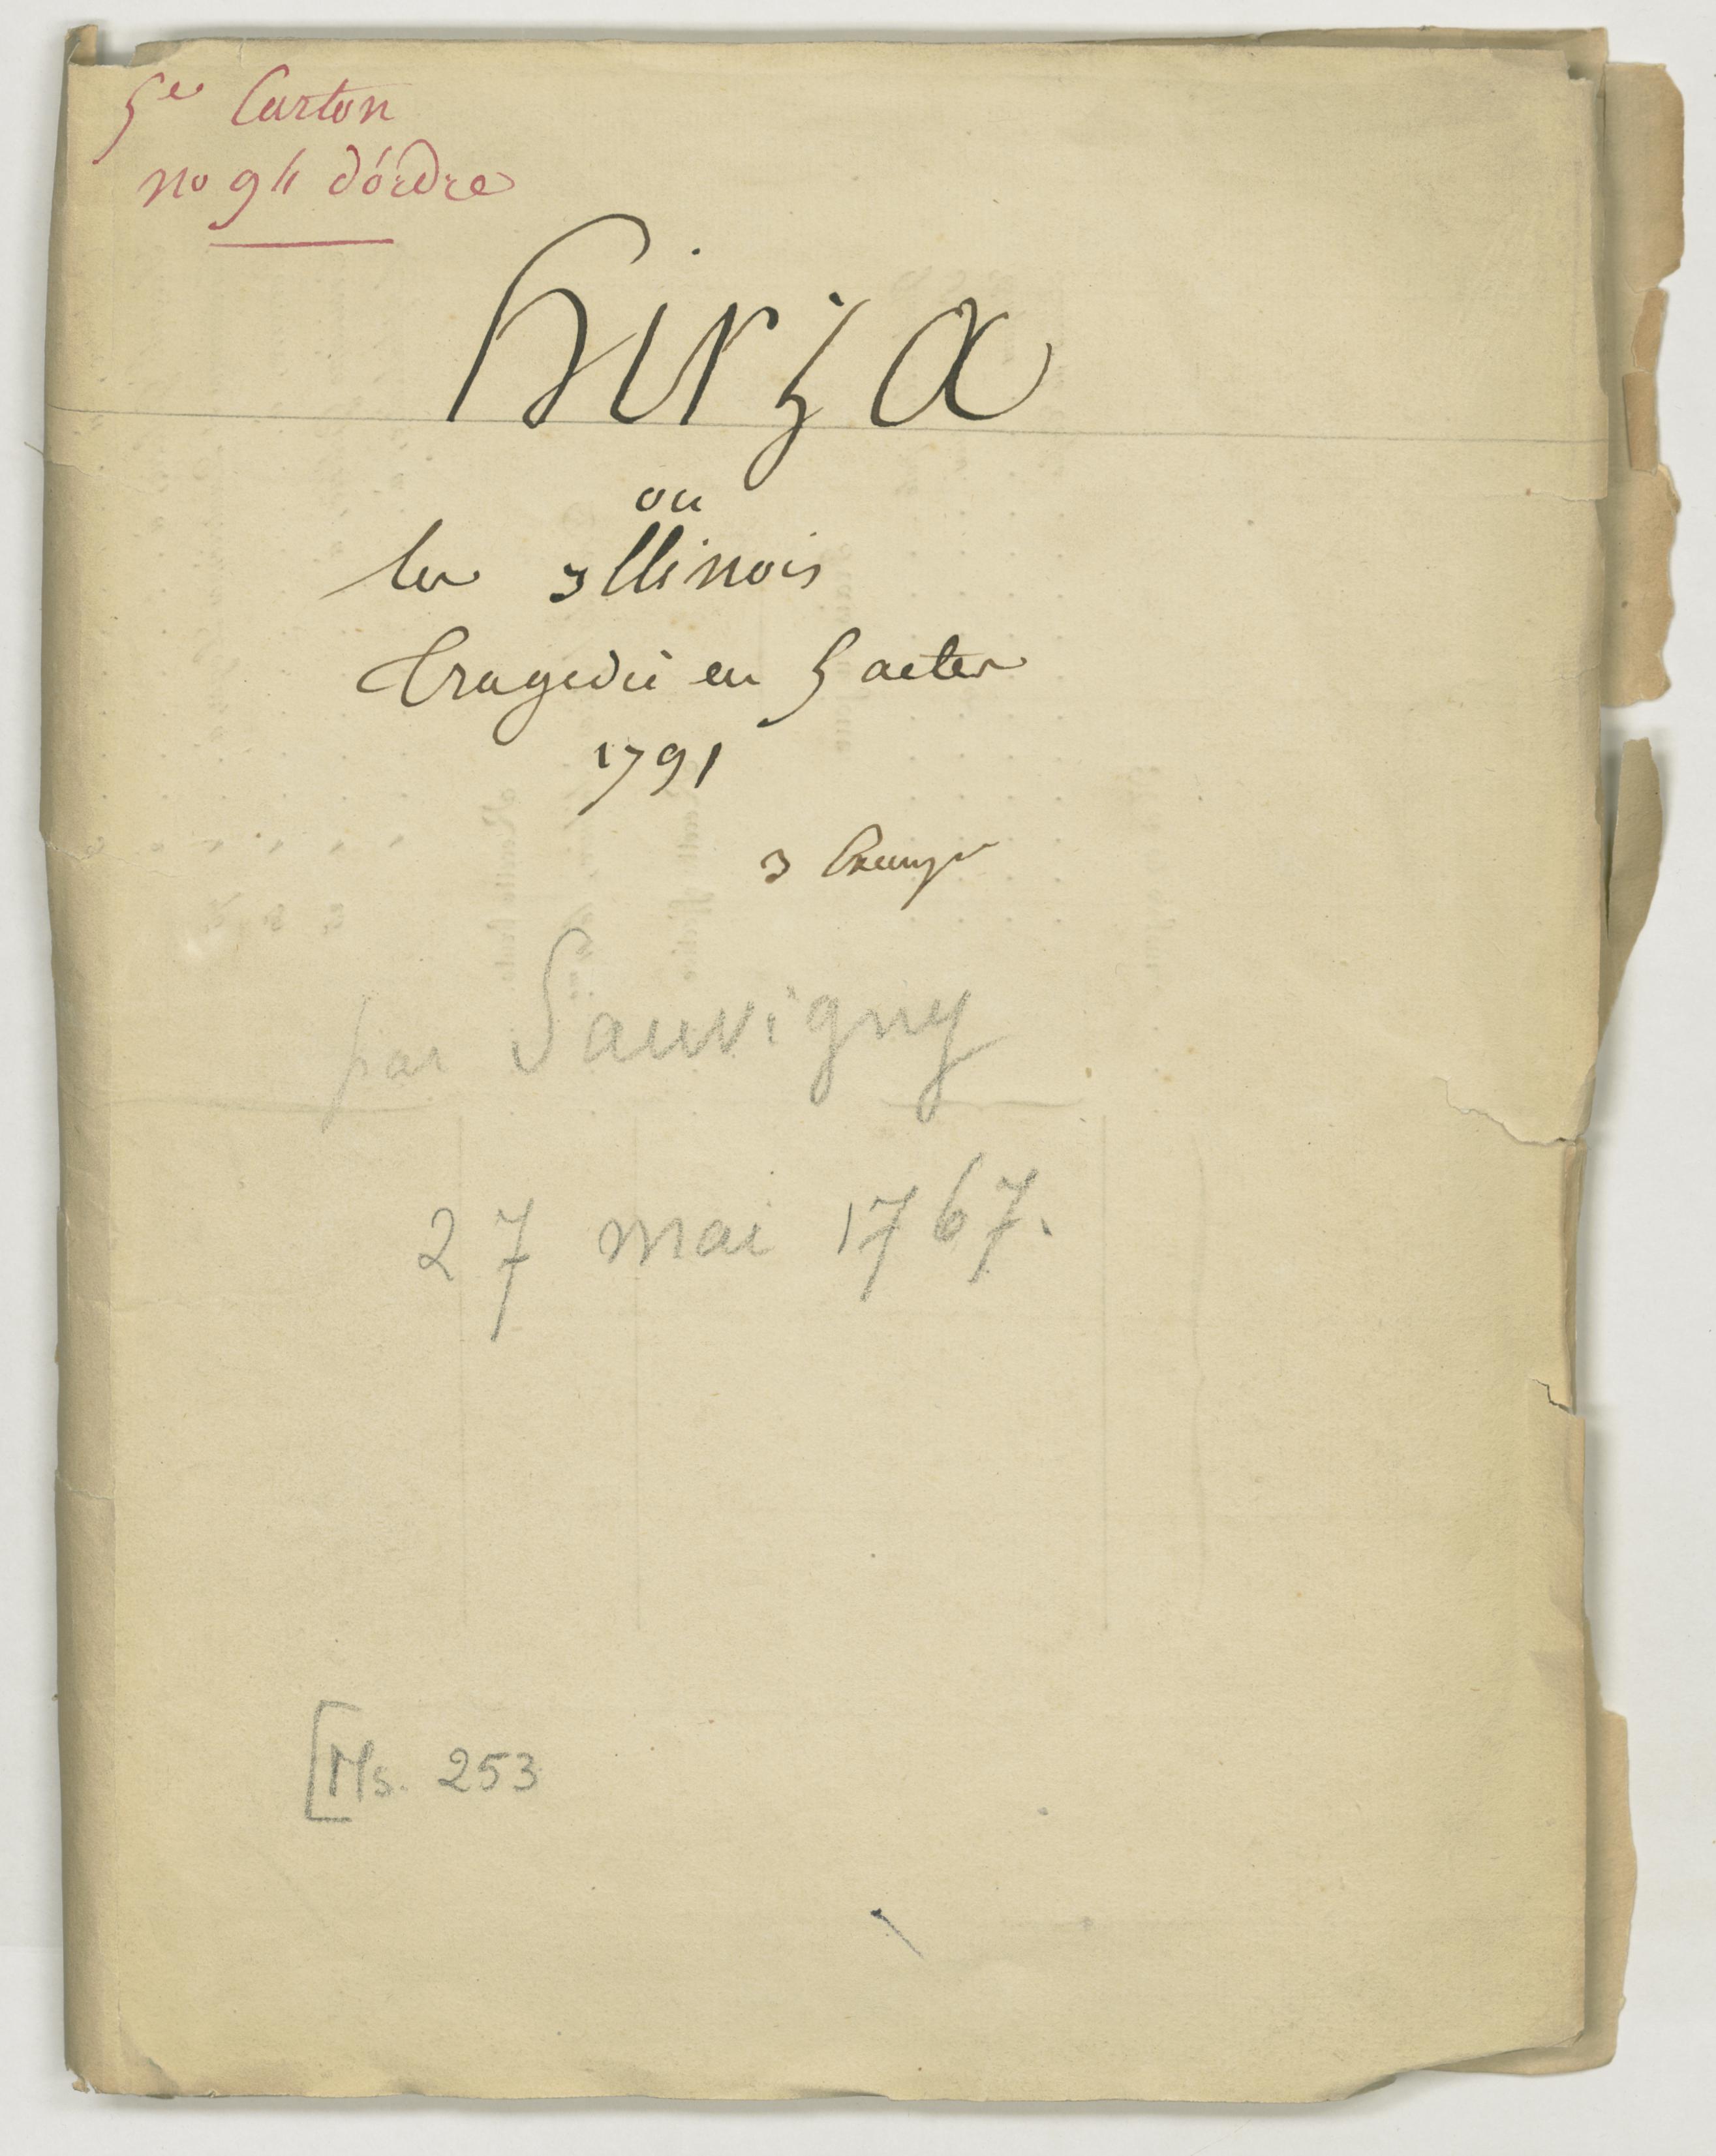 5e Carton
no 94 d'ordre
hirza
ou
les illinois
Tragedie en 5 actes
1791
3
par Sauvigny
27 mai 1767.
[Ms. 253